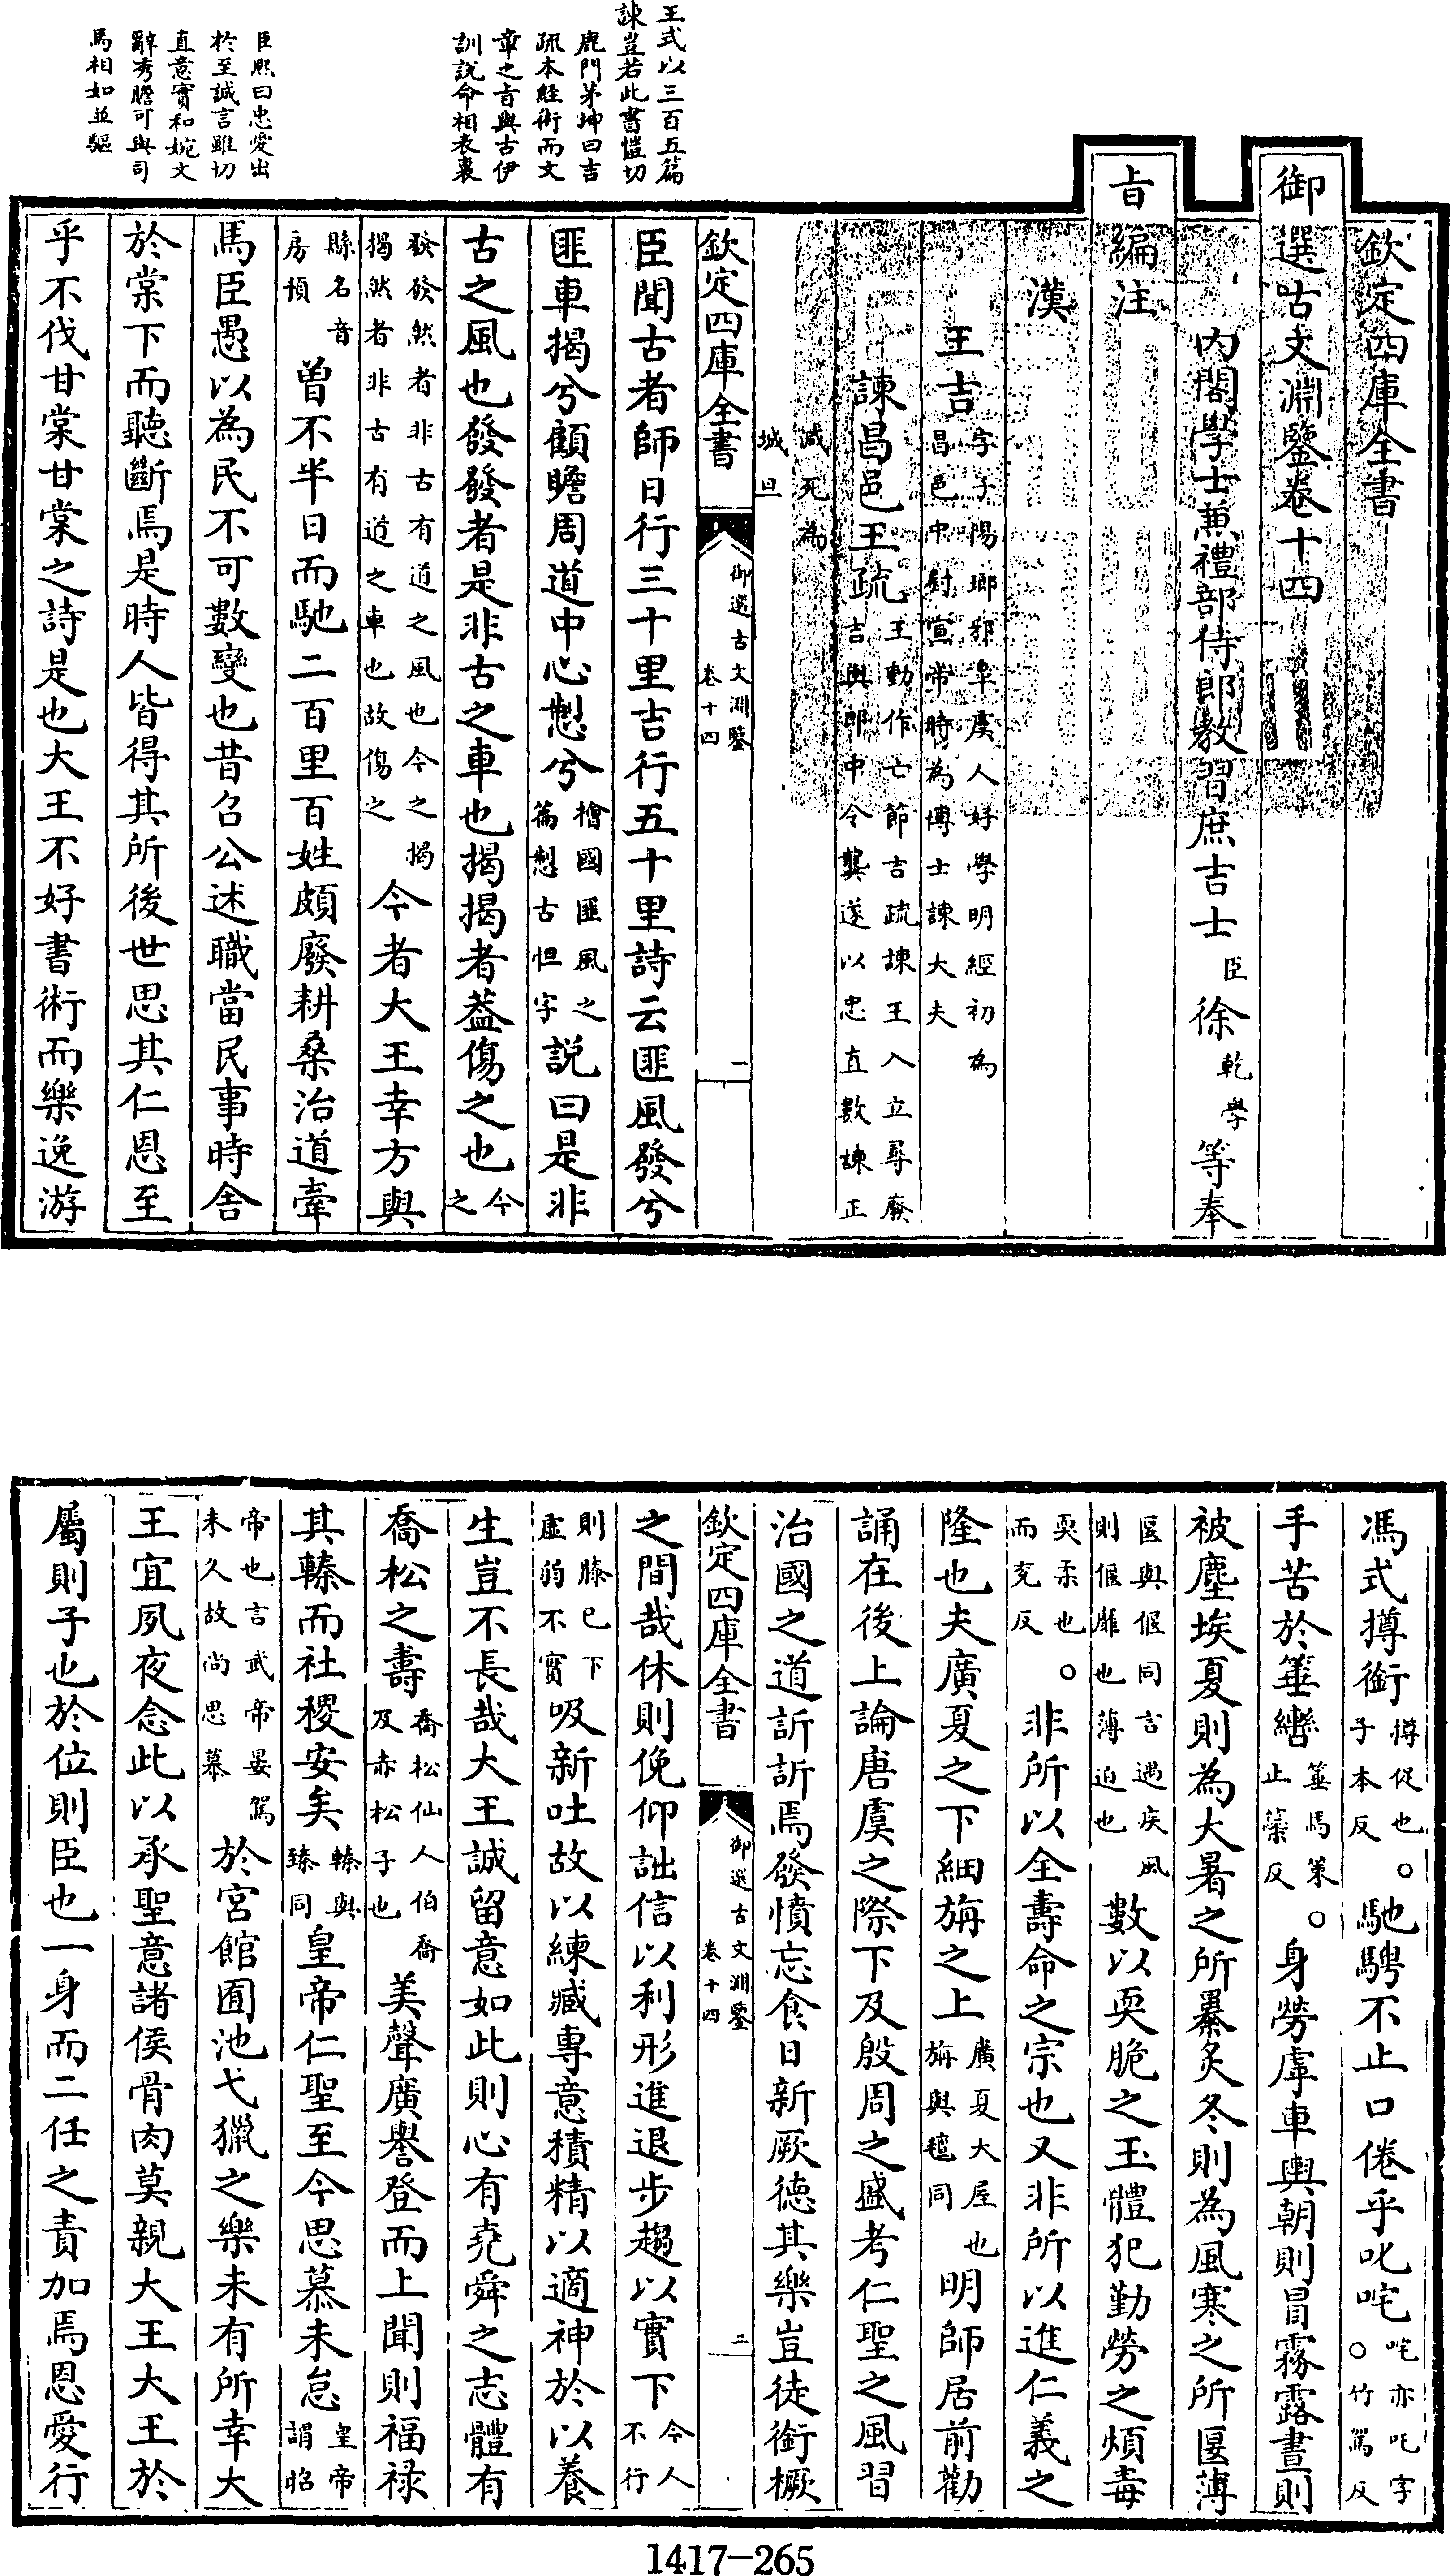 王式以三百五篇
諫豈若此書愷切
鹿門茅坤曰吉
疏本經術而文
章之旨與古伊
訓說命相表裏
臣熙曰忠愛出
於至誠言雖切
直意實和婉文
辭秀贍可與司
馬相如並驅
欽定四庫全書
御選古文淵鑒卷十四
內閣學士兼禮部侍郎教習庶吉士臣徐乾學等奉
旨編注
漢
王吉字子陽瑯邪臯虞人好學明經初為昌邑中尉宣帝時為博士諫大夫
諫昌邑王疏王動作亡節吉疏諫王入立尋廢吉與郎中令龔遂以忠直數諫正
減死為城旦
欽定四庫全書
御選古文淵鑒
卷十四
一
臣聞古者師日行三十里吉行五十里詩云匪風發兮
匪車揭兮顧瞻周道中心㓹兮檜國匪風之篇㓹古怛字說曰是非
古之風也發發者是非古之車也揭揭者葢傷之也今之
發發然者非古有道之風也今之揭揭然者非古有道之車也故傷之今者大王幸方與
縣名音房預曾不半日而馳二百里百姓頗廢耕桑治道牽
馬臣愚以為民不可數變也昔召公述職當民事時舍
於棠下而聽斷焉是時人皆得其所後世思其仁恩至
乎不伐甘棠甘棠之詩是也大王不好書術而樂逸游
馮式撙銜撙促也。子本反馳騁不止口倦乎叱咤咤亦吒字。竹駕反
手苦於箠轡箠馬策。止蘂反身勞虖車輿朝則冒霧露晝則
被塵埃夏則為大暑之所㬥炙冬則為風寒之所匽薄
匽與偃同言遇疾風則偃靡也薄迫也數以耎脆之玉體犯勤勞之煩毒
耎柔也。而兖反非所以全壽命之宗也又非所以進仁義之
隆也夫廣夏之下細旃之上廣夏大屋也旃與氊同明師居前勸
誦在後上論唐虞之際下及殷周之盛考仁聖之風習
治國之道訢訢焉發憤忘食日新厥德其樂豈徒銜橛
欽定四庫全書
御選古文淵鑒
卷十四
二
之間哉休則俛仰詘信以利形進退步趨以實下今人不行
則膝已下虛弱不實吸新吐故以練臧專意積精以適神於以養
生豈不長哉大王誠留意如此則心有堯舜之志體有
喬松之壽喬松仙人伯喬及赤松子也美聲廣譽登而上聞則福祿
其轃而社稷安矣轃與臻同皇帝仁聖至今思慕未怠皇帝謂昭
帝也言武帝晏駕未久故尚思慕於宮館囿池弋獵之樂未有所幸大
王宜夙夜念此以承聖意諸侯骨肉莫親大王大王於
屬則子也於位則臣也一身而二任之責加焉恩愛行
1417—265